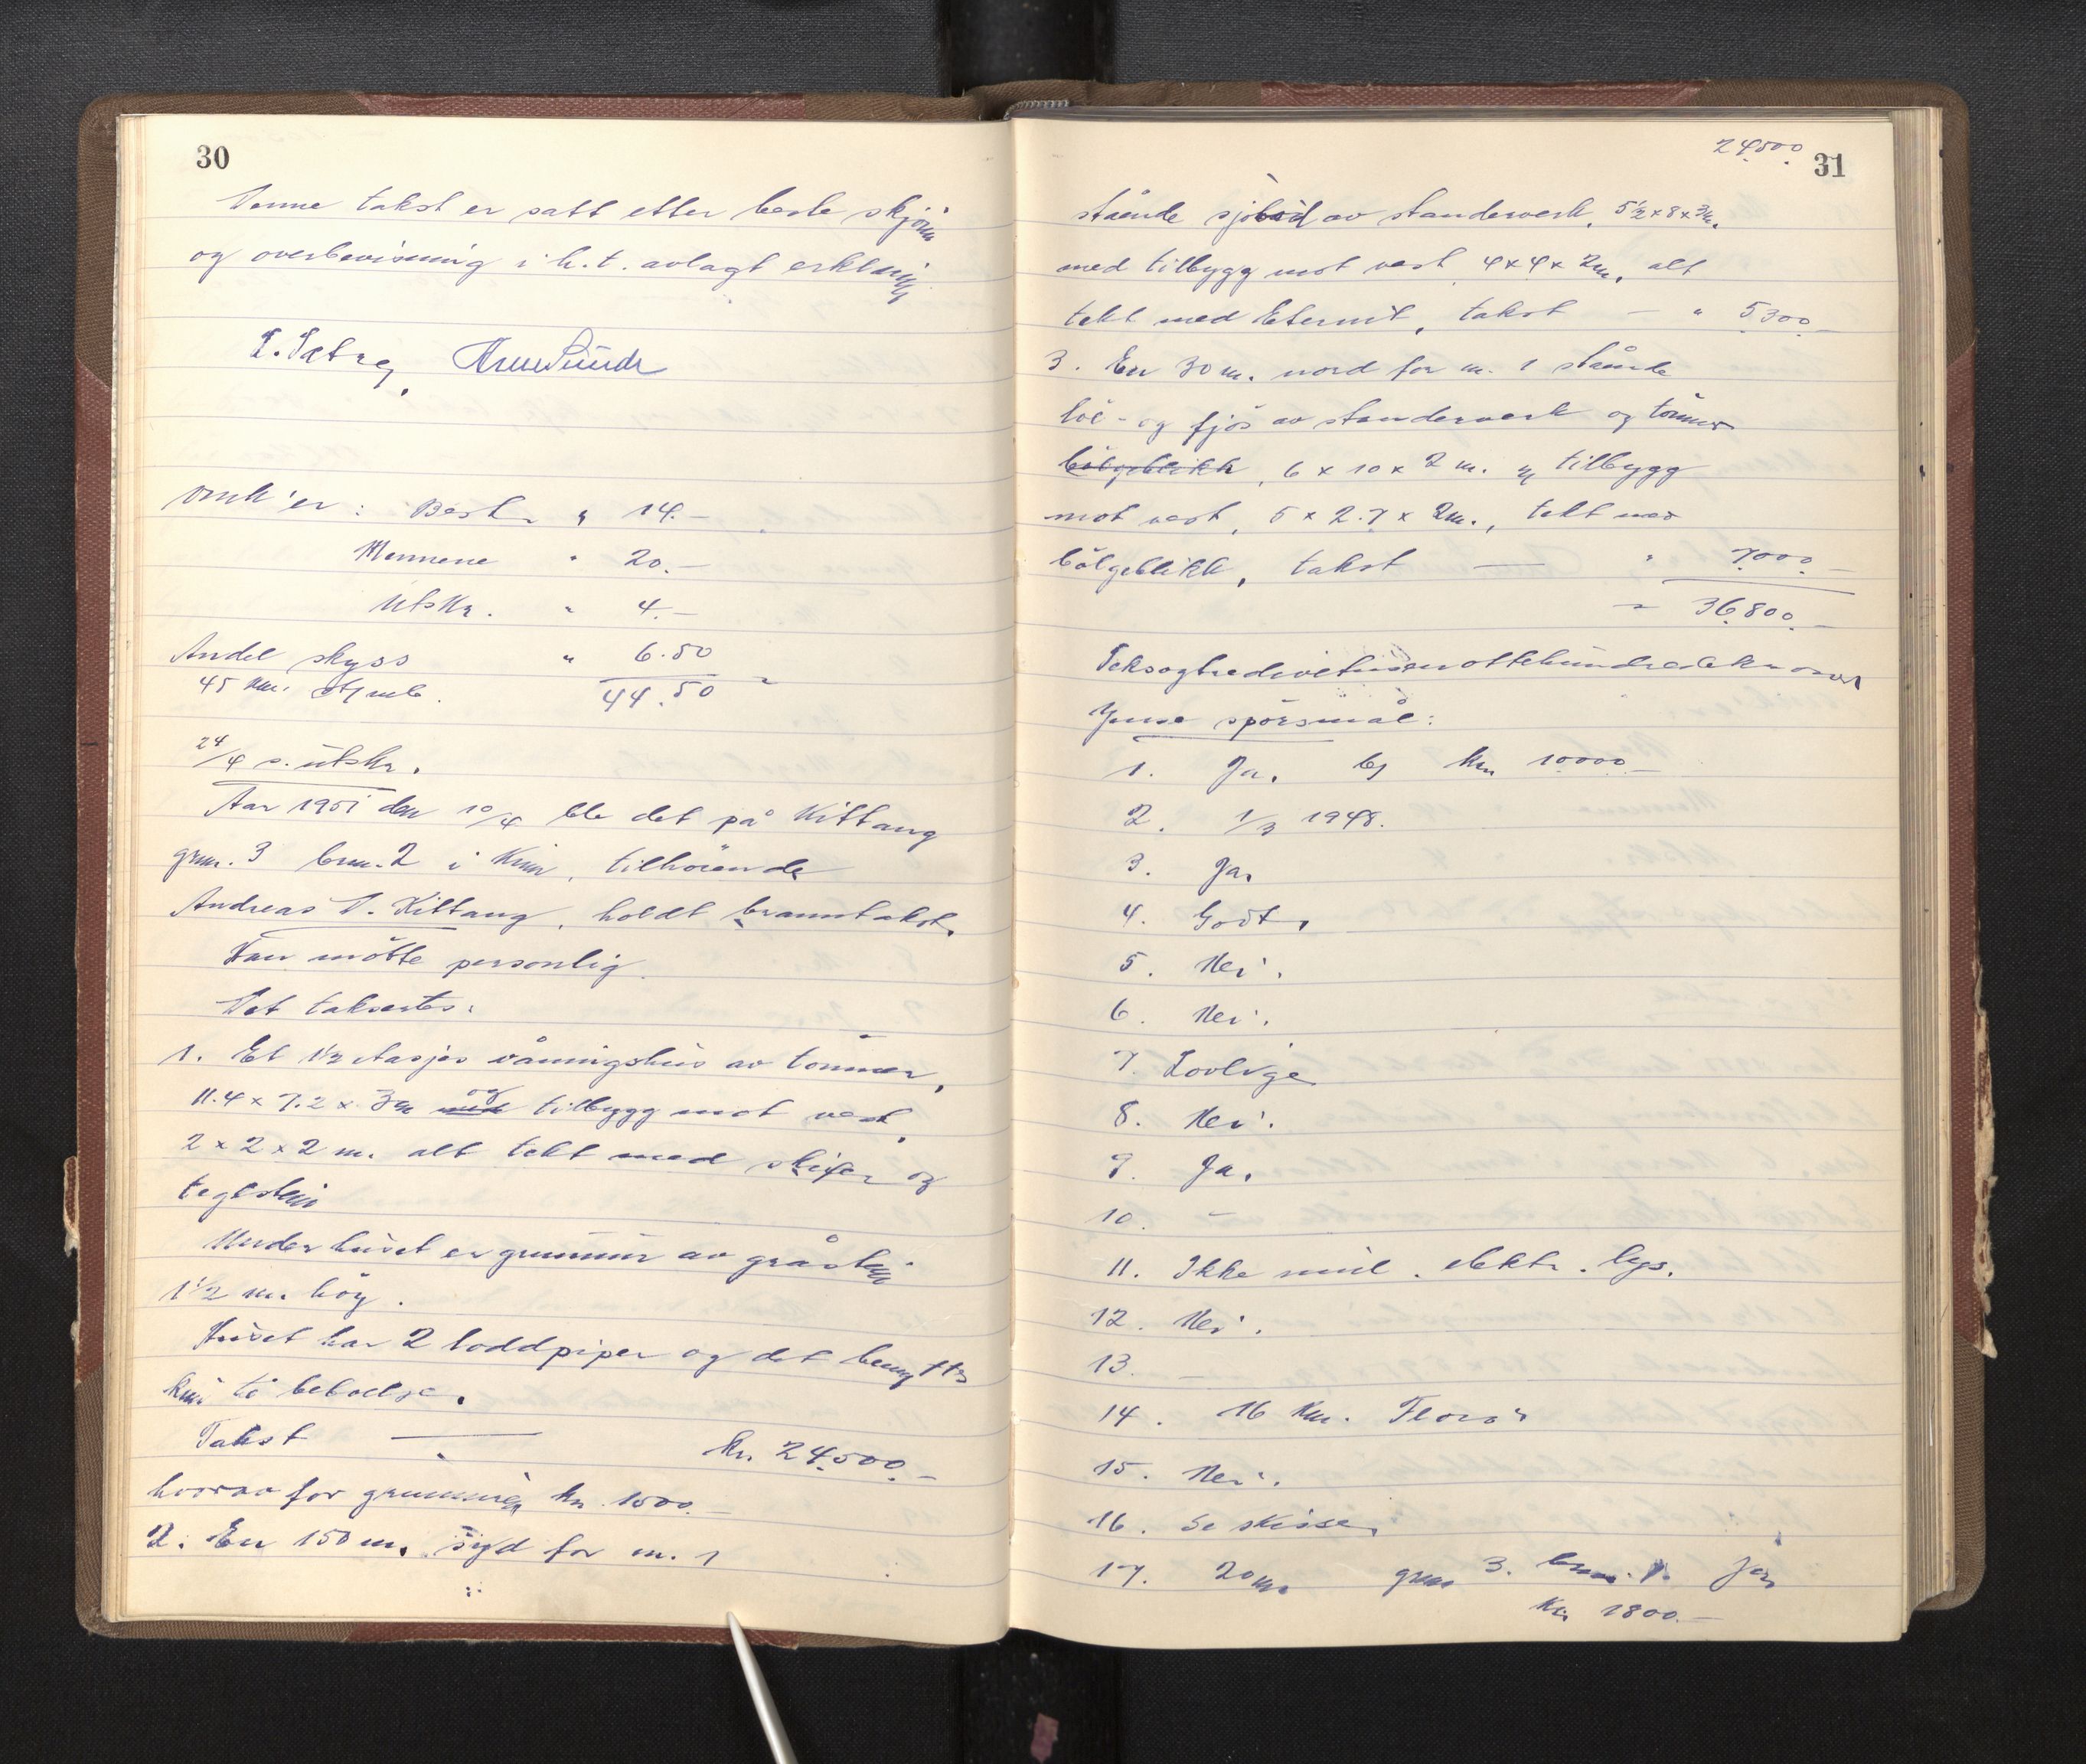 30
Denne takst er satt etter beste skjønn
og overbevisning i h.t. avlagt erklæring
S. Sætrey, Arne Sunde
Omk'er: Best. " 14.-
Mennene " 20.-
Utskr. " 4.-
Andel skyss " 6.50
45 km.
44.50
24/4 s. utskr.
Aar 1951 den 10/4 ble det på Kittang
grnr. 3 brnr. 2 i Kinn, tilhörende
Andreas D. Kittang, holdt branntakst.
Han mötte personlig.
Det takseertes:
1. Et 1½ etasjes våningshus av tömmer,
11.4 x 7.2 x 3 m og tilbygg mot vest,
2 x 2 x 2 m. alt tekt med skifer og
teglstein
Under huset er grunnmur av gråstein
1½ m. høg.
Huset har 2 loddpiper og det benyttes
kun til beboelse.
Takst — kr. 24.500.-
hvorav for grunnmuren kr. 1500.-
2. En 150 m. syd for nr. 1
24.500.
31
stående sjöbod av standerverk, 5½ x 8 x 3 m.
med tilbygg mot vest 4 x 4 x 2 m, alt
tekt med Eternit, takst — " 5.300.-
3. En 30 m. nord for nr. 1 stående
löe- og fjös av standerverk og tömmer
bölgeblikk, 6 x 10 x 2 m. og tilbygg
mot vest, 5 x 2.7 x 2 m., tekt med
bölgeblikk, takst — " 7.000.-
" 36.800.-
Seksogtredivetusenottehundredekroner
Ymse spörsmål:
1. Ja, kr 10000.-
2. 1/3 1948.
3. Ja,
4. Godt,
5. Nei.
6. Nei.
7. Lovlige
8. Nei.
9. Ja.
10. -
11. Ikke mil. elektr. lys.
12. Nei.
13. -
14. 16 km. Florö
15. Nei.
16. Se skisse,
17. 20 m. grnr 3. brnr. 1. Ja,
Kr. 1800.-